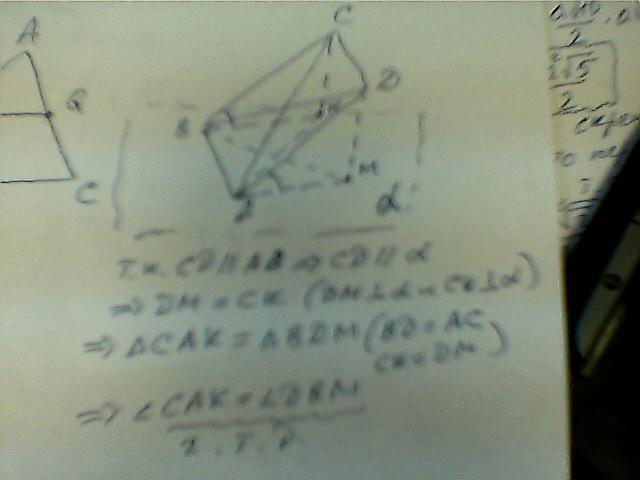 A
G
C
C
D
B
M
α
Т.к. CD || AB => CD || α
=> DM = CK (DM ⊥ α и CK ⊥ α)
=> ΔCAK = ΔBDM (BD = AC
CK = DM)
=> ∠CAK = ∠DBM
ч.т.д